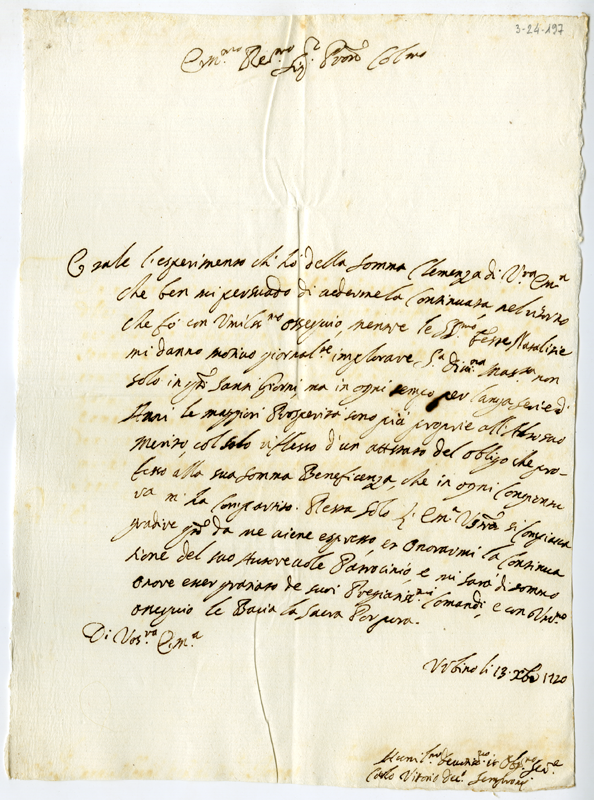 3-24-197
Em.mo Re.mo Sig.r Pron Colmo
È tale l'esperimento ch'hò della somma Clemenza di V.ra Em.a
che ben mi persuado di vedermela Continuata, nel
che fò con Umiliss.mo ossequio, mentre le SS.me feste Natalizie
mi danno motivo d'implorare S.a Divi.na Maestà non
solo in q.ti santi Giorni ma in ogni tempo per larga serie di
Anni le maggiori Prosperità sono più proprie all'Alto suo
merito, col solo riflesso d'un attestato del obligo che pro-
fesso alla sua somma Beneficenza che in ogni
va m'ha Compartito. Resta solo l'Em.a Vostra si Compiaccia
gradire q.to da me viene espresso, et Onorarmi la Continua
zione del suo Autorevole Patrocinio, e mi sarà di sommo
onore esser graziato de suoi Pregiatis.mi Comandi, e con
ossequio le Bacio la Sacra Porpora.
Di Vos.ra Em.a
Urbino li 13 Xbre 1720
Umil.mo Devotis.mo et Obl.mo Ser.e
Carlo Vittorio